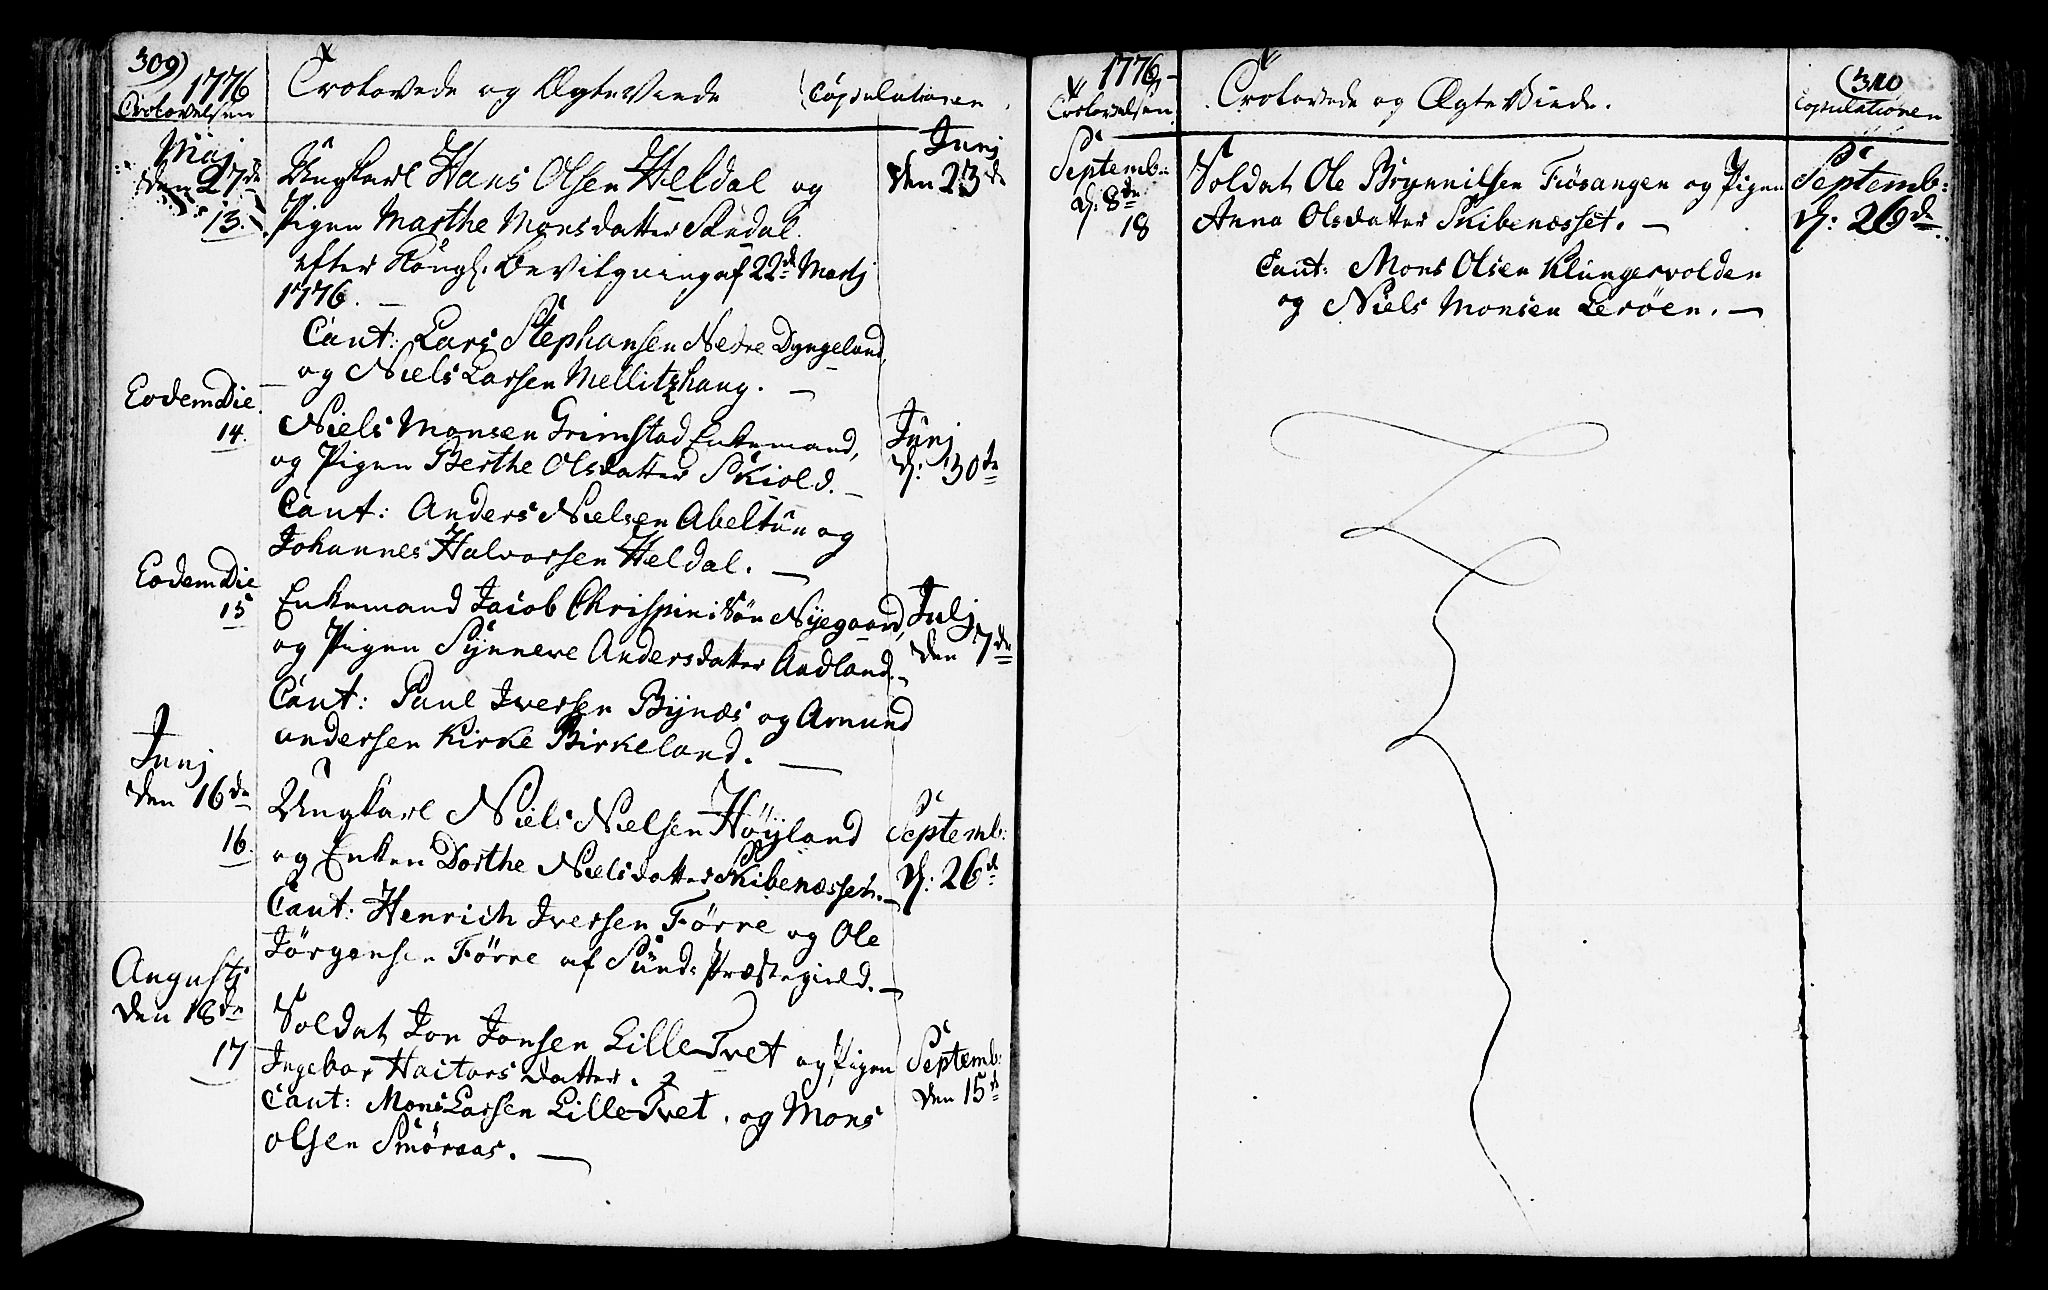 309)
1776
Trolovelsen
Trolovede og Ægteviede
Copulationen
Maj
den 27de
13.
Ungkarl Hans Olsen Heldal og
Pigen Marthe Monsdatter Skedal.
efter Kongl: Bevilgning af 22d Martj
1776. —
Caut: Lars Stephansen Nedre Dyngeland
og Niels Larsen Mellitzhaug. —
Junj
den 23de
Eodem Die
14.
Niels Monsen Grimstad Enkemand,
og Pigen Berthe Olsdatter Skiold. —
Caut: Anders Nielsen Abeltún og
Johannes Halvorsen Heldal. —
Junj
d: 30te
Eodem Die
15
Enkemand Jacob Chrispini Søn Nyegaard,
og Pigen Synneve Andersdatter Aadland.
Caut: Paul Iversen Bynæs og Amund
andersen Kirke Birkeland. —
Julj
den 7de
Junj
den 16de
16.
Ungkarl Niels Nielsen Høyland
og Enken Dorthe Nielsdatter Skibenesset. —
Caut: Henrich Iversen Førre og Ole
Jørgensen Førre af Sund: Præstegield. —
Septemb:
d: 26d
Augustj
den 18de
17
Soldat Jon Jonsen Lille Tvet og Pigen
Ingebor Haitors datter.
Caut: Mons Larsen Lille Tvet, og Mons
olsen Smøraas. —
Septemb:
den 15d
1776
Trolovelsen
Trolovede og Ægteviede.
(310
Copulationen
Septemb:
d: 8de
18
Soldat Ole Brynnilsen Fiøsangen og Pigen
Anna Olsdatter Skibenæsset. —
Caut: Mons Olsen Klungervolden
og Niels Monsen Lerøen. —
Septemb:
d: 26de